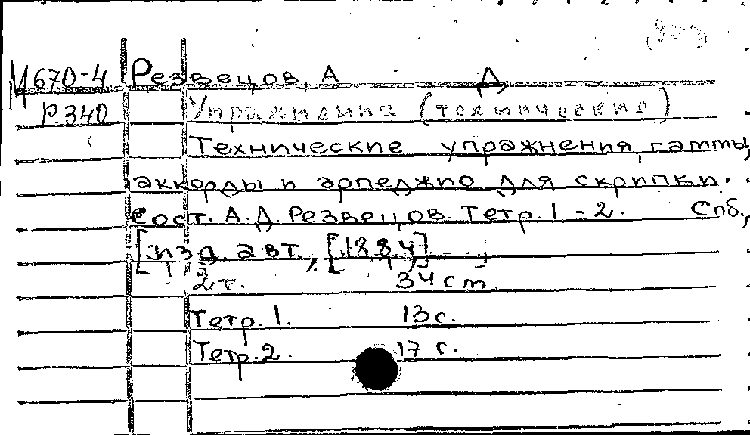 М670-4 Резвецов, А Д
Р340 Упражнения (технические)
Технические упражнения, гаммы,
аккорды и арпеджио для скрипки.
Сост. А.Д. Резвецов. Тетр. 1-2. Спб.,
[изд. авт., [1884]
2т. 34 cm
Тетр. 1. 13с.
Тетр. 2. 17 с.